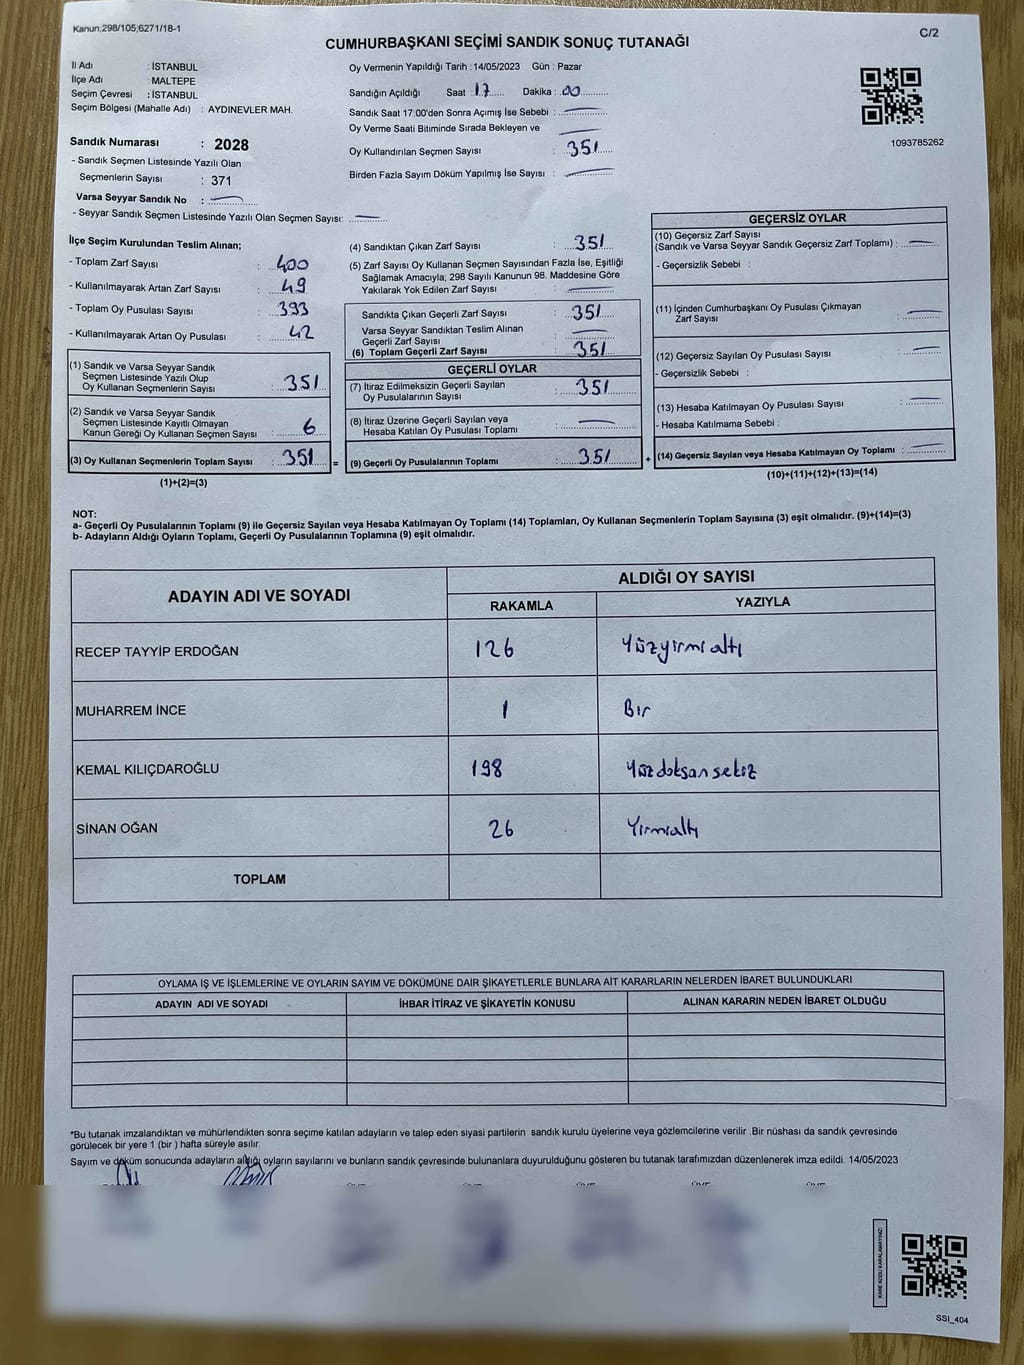 Kanun:298/105;6271/18-1
C/2
CUMHURBAŞKANI SEÇİMİ SANDIK SONUÇ TUTANAĞI
İl Adı : İSTANBUL
İlçe Adı : MALTEPE
Seçim Çevresi : İSTANBUL
Seçim Bölgesi (Mahalle Adı) : AYDINEVLER MAH.
Sandık Numarası : 2028
- Sandık Seçmen Listesinde Yazılı Olan
Seçmenlerin Sayısı : 371
Varsa Seyyar Sandık No :
- Seyyar Sandık Seçmen Listesinde Yazılı Olan Seçmen Sayısı:
Oy Vermenin Yapıldığı Tarih : 14/05/2023 Gün : Pazar
Sandığın Açıldığı Saat : 17 Dakika : 00
Sandık Saat 17:00'den Sonra Açımış İse Sebebi :
Oy Verme Saati Bitiminde Sırada Bekleyen ve
Oy Kullandırılan Seçmen Sayısı : 351
Birden Fazla Sayım Döküm Yapılmış İse Sayısı :
1093785262
İlçe Seçim Kurulundan Teslim Alınan;
- Toplam Zarf Sayısı : 400
- Kullanılmayarak Artan Zarf Sayısı : 49
- Toplam Oy Pusulası Sayısı : 393
- Kullanılmayarak Artan Oy Pusulası : 42
(1) Sandık ve Varsa Seyyar Sandık
Seçmen Listesinde Yazılı Olup
Oy Kullanan Seçmenlerin Sayısı : 351
(2) Sandık ve Varsa Seyyar Sandık
Seçmen Listesinde Kayıtlı Olmayan
Kanun Gereği Oy Kullanan Seçmen Sayısı : 6
(3) Oy Kullanan Seçmenlerin Toplam Sayısı : 351
(1)+(2)=(3)
(4) Sandıktan Çıkan Zarf Sayısı : 351
(5) Zarf Sayısı Oy Kullanan Seçmen Sayısından Fazla İse, Eşitliği
Sağlamak Amacıyla; 298 Sayılı Kanunun 98. Maddesine Göre
Yakılarak Yok Edilen Zarf Sayısı :
Sandıkta Çıkan Geçerli Zarf Sayısı : 351
Varsa Seyyar Sandıktan Teslim Alınan
Geçerli Zarf Sayısı :
(6) Toplam Geçerli Zarf Sayısı : 351
GEÇERLİ OYLAR
(7) İtiraz Edilmeksizin Geçerli Sayılan
Oy Pusulalarının Sayısı : 351
(8) İtiraz Üzerine Geçerli Sayılan veya
Hesaba Katılan Oy Pusulası Toplamı :
= (9) Geçerli Oy Pusulalarının Toplamı : 351
GEÇERSİZ OYLAR
(10) Geçersiz Zarf Sayısı
(Sandık ve Varsa Seyyar Sandık Geçersiz Zarf Toplamı) :
- Geçersizlik Sebebi :
(11) İçinden Cumhurbaşkanı Oy Pusulası Çıkmayan
Zarf Sayısı :
(12) Geçersiz Sayılan Oy Pusulası Sayısı :
- Geçersizlik Sebebi :
(13) Hesaba Katılmayan Oy Pusulası Sayısı :
- Hesaba Katılmama Sebebi :
+ (14) Geçersiz Sayılan veya Hesaba Katılmayan Oy Toplamı :
(10)+(11)+(12)+(13)=(14)
NOT:
a- Geçerli Oy Pusulalarının Toplamı (9) ile Geçersiz Sayılan veya Hesaba Katılmayan Oy Toplamı (14) Toplamları, Oy Kullanan Seçmenlerin Toplam Sayısına (3) eşit olmalıdır. (9)+(14)=(3)
b- Adayların Aldığı Oyların Toplamı, Geçerli Oy Pusulalarının Toplamına (9) eşit olmalıdır.
ADAYIN ADI VE SOYADI
ALDIĞI OY SAYISI
RAKAMLA YAZIYLA
RECEP TAYYİP ERDOĞAN 126 Yüzyirmialtı
MUHARREM İNCE 1 Bir
KEMAL KILIÇDAROĞLU 198 Yüzdoksansekiz
SİNAN OĞAN 26 Yirmialtı
TOPLAM
OYLAMA İŞ VE İŞLEMLERİNE VE OYLARIN SAYIM VE DÖKÜMÜNE DAİR ŞİKAYETLERLE BUNLARA AİT KARARLARIN NELERDEN İBARET BULUNDUKLARI
ADAYIN ADI VE SOYADI İHBAR İTİRAZ VE ŞİKAYETİN KONUSU ALINAN KARARIN NEDEN İBARET OLDUĞU
*Bu tutanak imzalandıktan ve mühürlendikten sonra seçime katılan adayların ve talep eden siyasi partilerin sandık kurulu üyelerine veya gözlemcilerine verilir .Bir nüshası da sandık çevresinde
görülecek bir yere 1 (bir ) hafta süreyle asılır.
Sayım ve döküm sonucunda adayların aldığı oyların sayılarını ve bunların sandık çevresinde bulunanlara duyurulduğunu gösteren bu tutanak tarafımızdan düzenlenerek imza edildi. 14/05/2023
KARE KODU KARALAMAYINIZ!
SSI_404